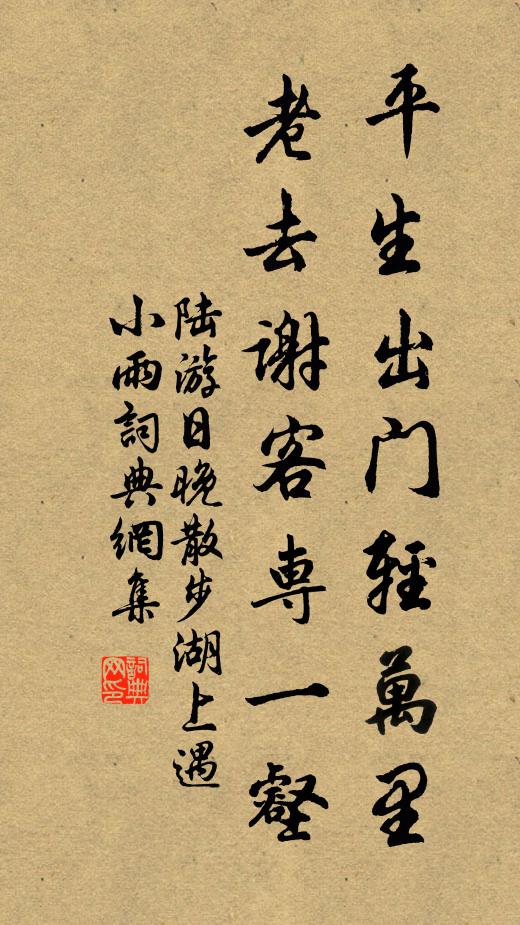 平生出門輕萬里
老去謝客專一壑
陆游日晚散步湖上遇
小雨詞典網集
詞典
网印